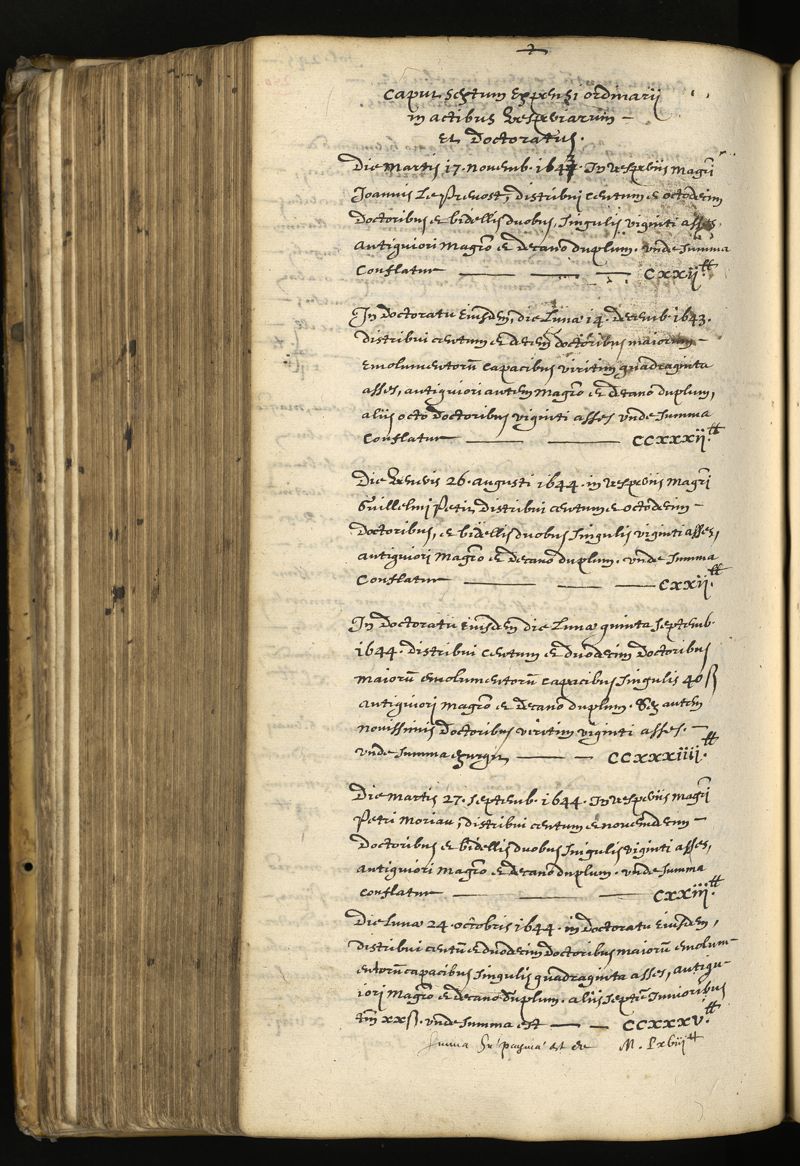 Caput sextum Expensi ordinarii
in actibus Vesperiarum –
Et Doctoratus.
Die Martis 17. Novemb. 1643. In Vesperiis Magri
Joannis Le Prevost, distribui centum et octodecim
Doctoribus et bidellis duobus, singulis viginti asses,
antiquiori magro et decano duplum. Unde summa
Conflatur — — — CXXij.tt
In Doctoratu Eiusdem, die Lunæ 14. decemb. 1643.
distribui centum et decem doctoribus maiorum –
Emolumentorū capacibus viritim quadraginta
asses, antiquiori autem magro et decano duplum,
aliis octo Doctoribus viginti asses unde summa
Conflatur — — CCXXXij.tt
Die Veneris 26. augusti 1644. in Vesperiis Magri
Guillelmi Petit, Distribui centum et octodecim –
Doctoribus, et bidellis duobus singulis viginti asses,
antiquiori magro et decano duplum. unde summa
Conflatur — — — CXXij.tt
In Doctoratu Eiusdem die Lunæ quinta septemb.
1644. distribui centum et duodecim Doctoribus
maiorū emolumentorū capacibus singulis 40 ß
antiquiori magro et decano duplum. sex autem
novissimis Doctoribus viritim viginti asses. –
unde summa exurgit — — CCXXXiiii.tt
Die Martis 27. septemb. 1644. In Vesperiis magri
Petri Moriau, distribui centum et novemdecim –
Doctoribus et bidellis duobus singulis viginti asses,
antiquiori magro et decano duplum. unde summa
Conflatur — — CXXiii.tt
Die Lunæ 24. octobris 1644. in Doctoratu Eiusdem,
distribui centū et duodecim doctoribus maiorū emolum-
entorū capacibus singulis quadraginta asses, antiqu-
iori magro et decano duplum. aliis septē Iunioribus
tm̄ XX ß. unde summa est — — CCXXXV.tt
summa est de M. Lxviij tt